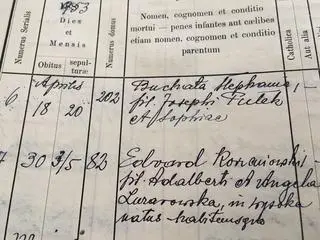 1953
Numerus Serialis
Dies
et
Mensis
Obitus
sepul-
turae
Numerus domus
Nomen, cognomen et conditio
mortui — penes infantes aut coelibes
etiam nomen, cognomen et conditio
parentum
Catholica
Aut alia
6
Aprilis
18 20
202
Buchata Stephania,
fil. Josephi Pulek
et Sophiae
7
30 3/5
82
Edvard
fil. Adalberti et Angela
in Wysoka
natus